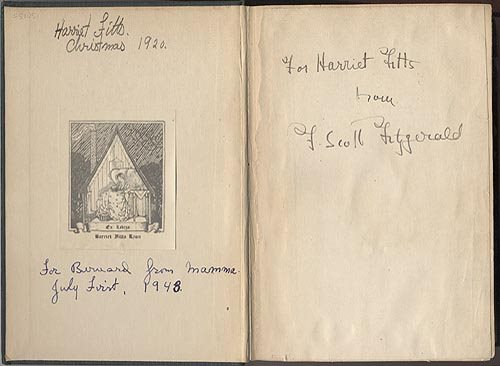 Harriet Fitts.
Christmas 1920.
Ex Libris
Harriet Fitts Ryan
For Bernard from Mamma.
July First, 1943.
For Harriet Fitts
from
F. Scott Fitzgerald